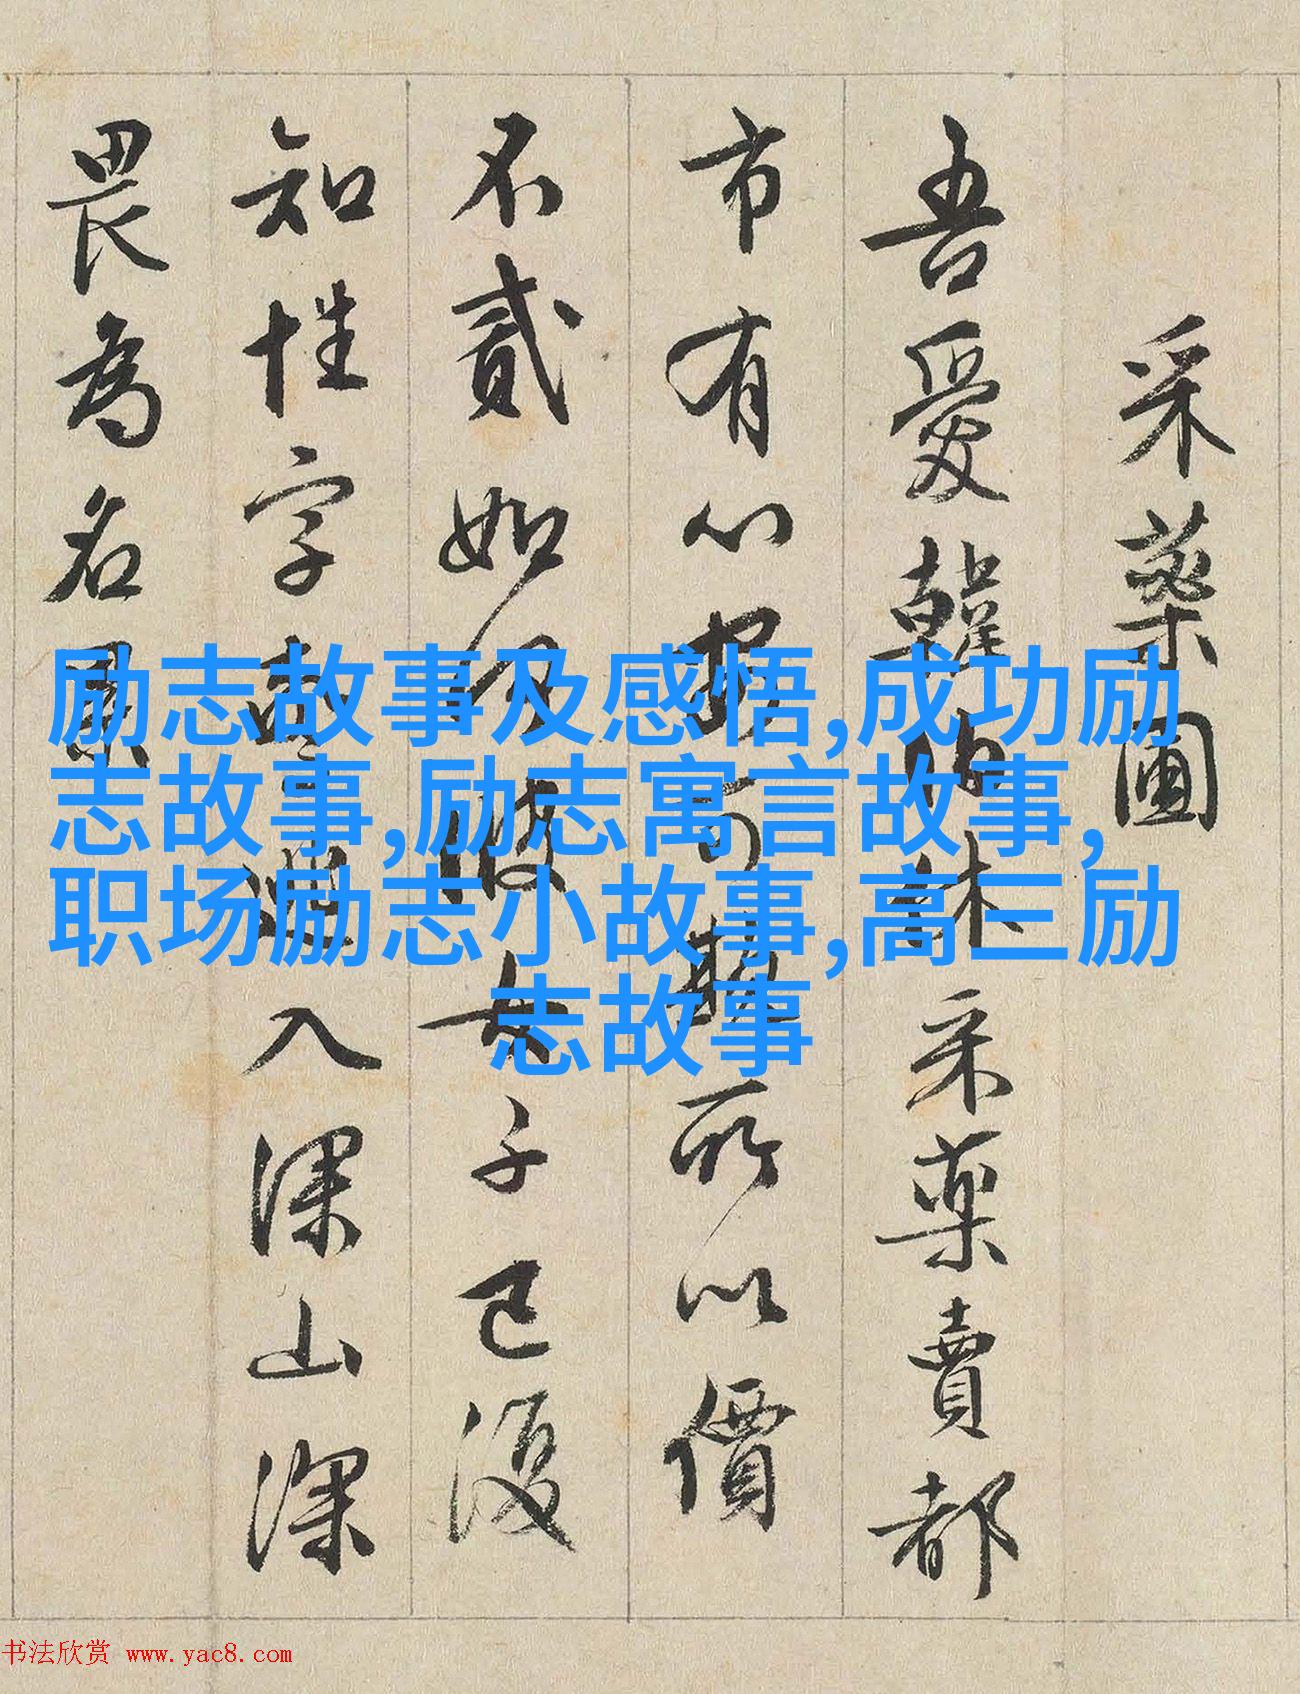 采藥圃
吾愛韓伯休采藥賣都
市有心
所以價
不貳如何彼女子已復
知性字
入深山深
畏為名累
励志故事及感悟,成功励
志故事,励志寓言故事,
职场励志小故事,高三励
志故事
书法欣赏 www.yac8.com